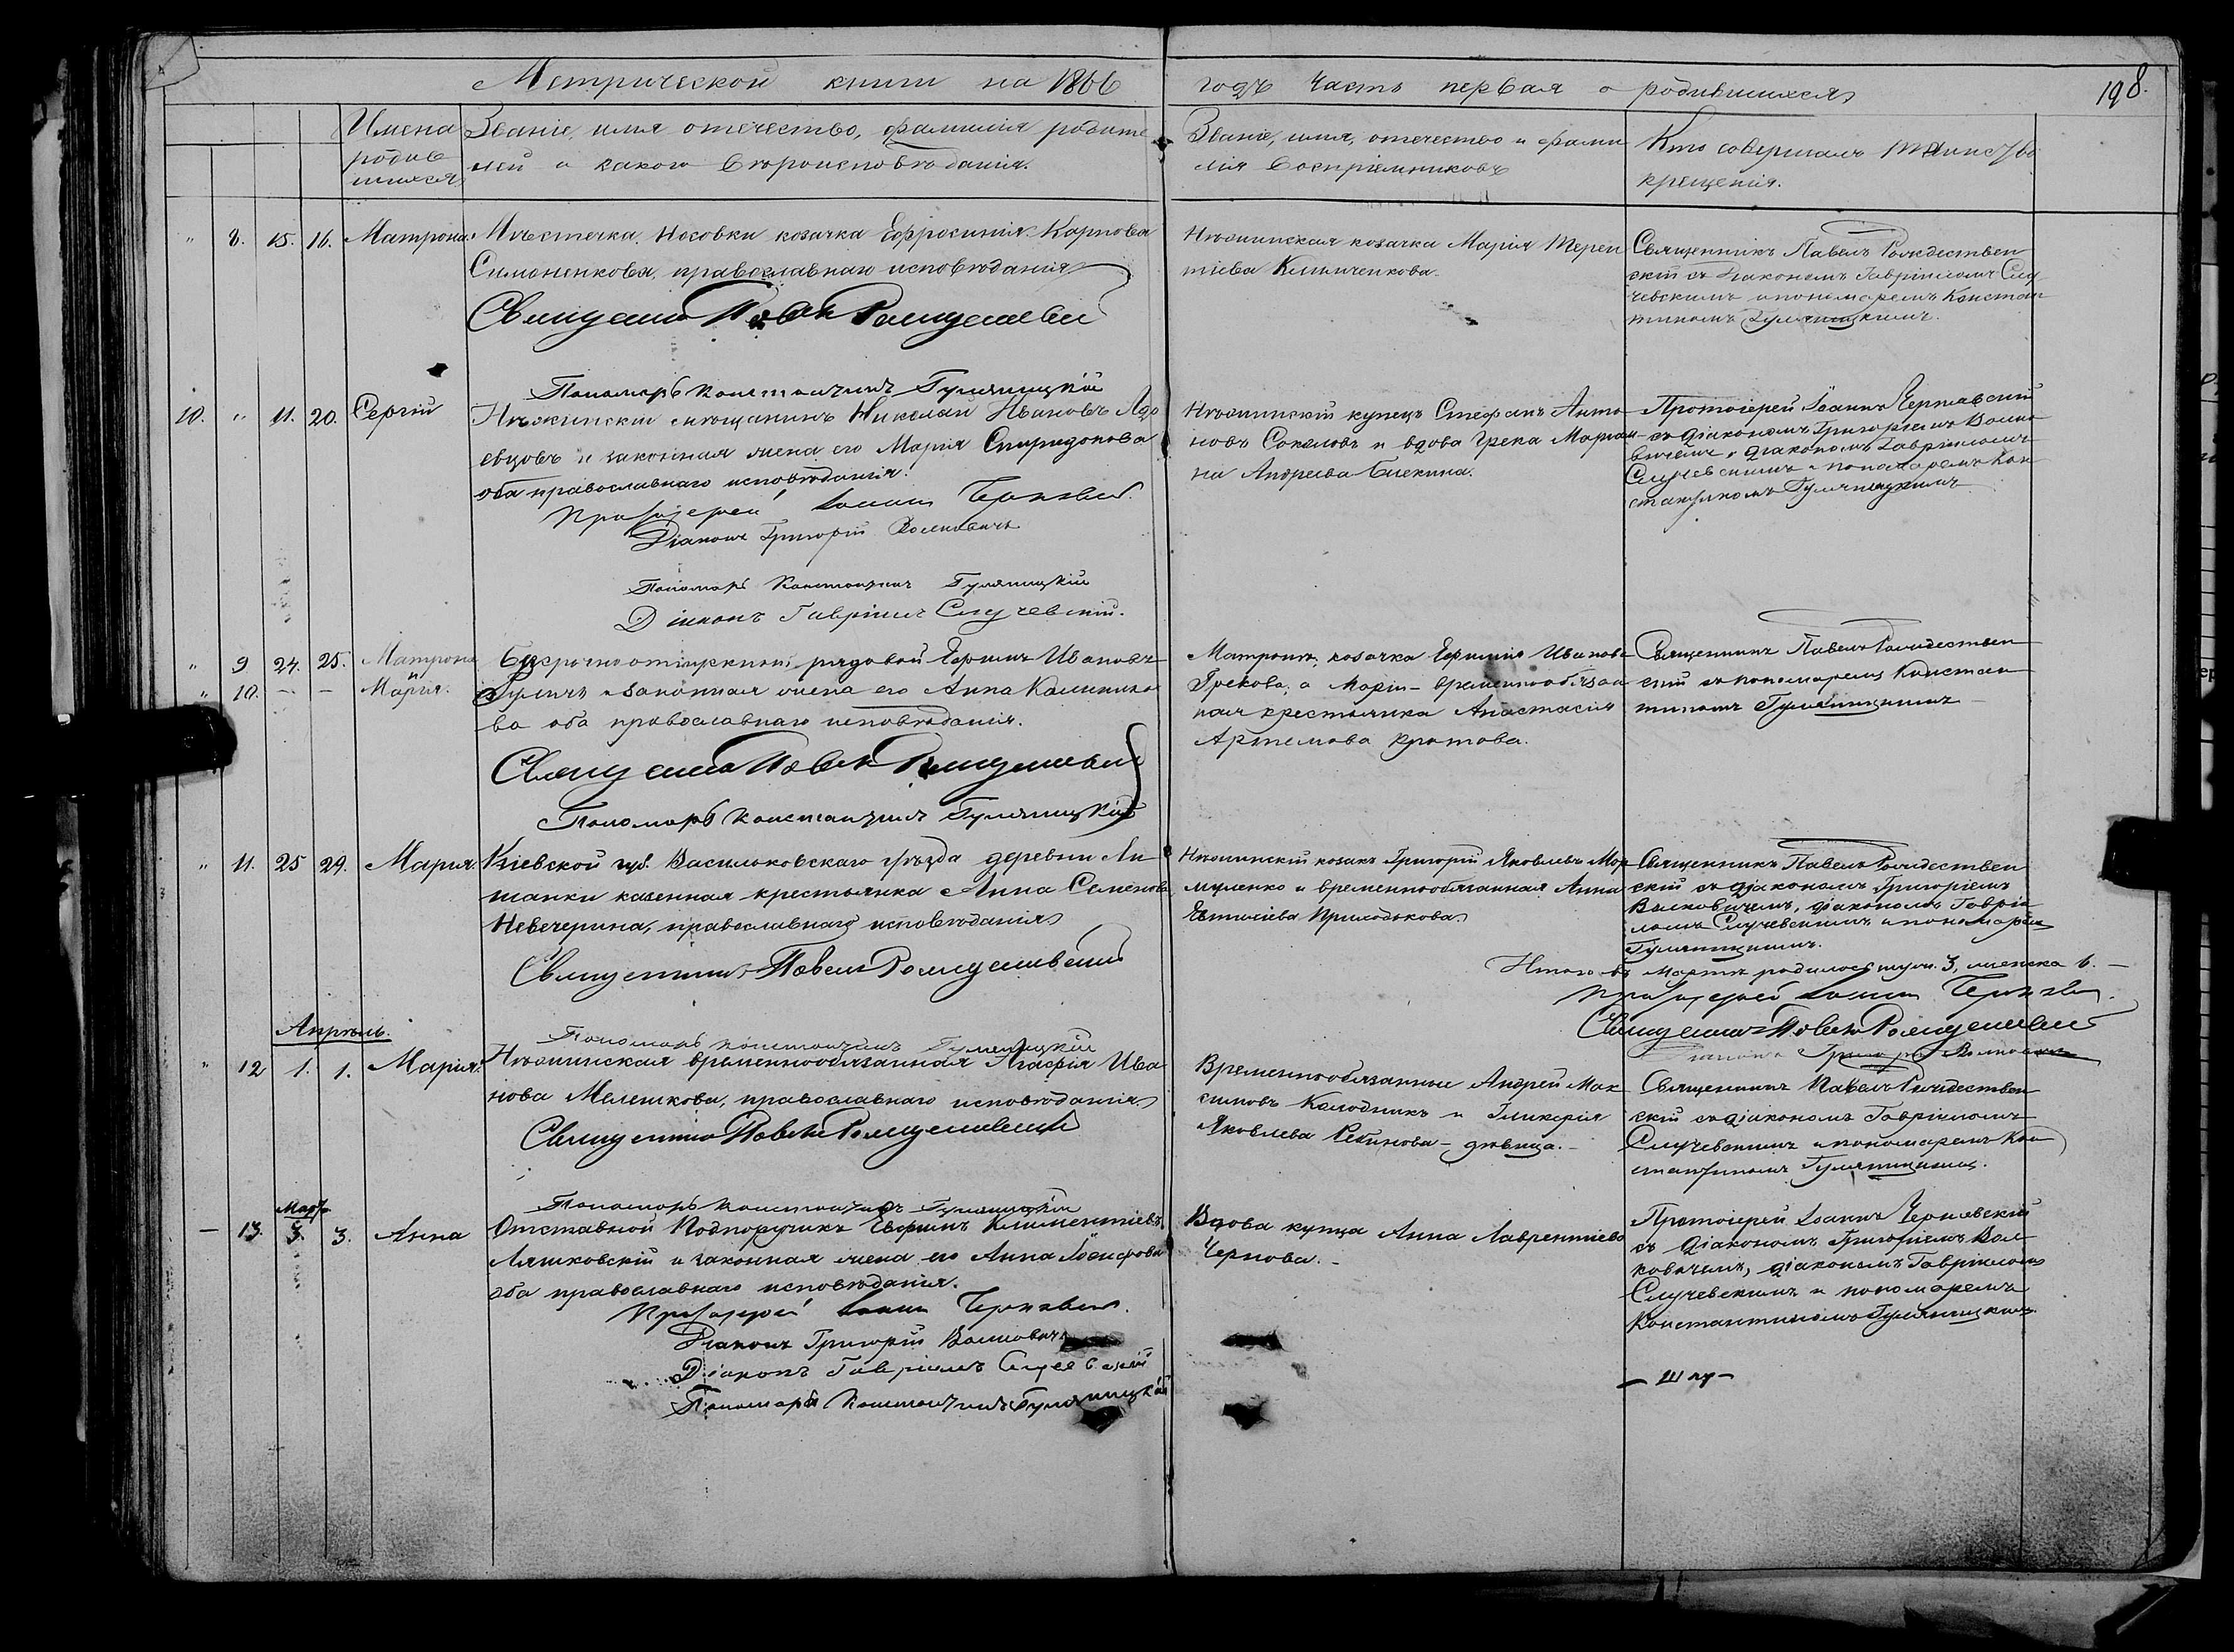 Метрической книги на 1866
годъ часть первая о родившихся
198.
Имена
родив
шихся
Званіе, имя отечество, фамилія родите
лей и какого вѣроисповѣданія.
Званіе, имя, отечество и фами
лія воспріемниковъ
Кто совершалъ таинство
крещенія.
" 8. 15. 16. Матрона.
Мѣстечка Носовки козачка Евфросинія Карпова
Симоненкова, православнаго исповѣданія
Священникъ Павелъ Рождественскій
Пономарь Константинъ
Нѣжинская козачка Марія Терен
тіева
Священникъ Павелъ Рождествен
скій съ діакономъ Гавріиломъ Слу
чевскимъ и пономаремъ Констан
тиномъ
10. " 11. 20. Сергій
Нѣжинскій мѣщанинъ Николай Ивановъ
и законная жена его Марія Спиридонова
оба православнаго исповѣданія.
Протоіерей Іоаннъ
Діаконъ Григорій Волковичъ
Пономарь Константинъ
Діаконъ Гавріилъ Случевскій.
Нѣжинскій купецъ Стефанъ Анто
новъ Соколовъ и вдова Грека Маріан
на Андреева
Протоіерей Іоаннъ Чернявскій
съ діакономъ Григоріемъ Волко
вичемъ, діакономъ Гавріиломъ
Случевскимъ и пономаремъ Кон
стантиномъ
" 9 24. 25. Матрона
и
" 10. - - Марія.
рядовой Ефимъ Ивановъ
и законная жена его Анна Калинико
ва оба православнаго исповѣданія.
Священникъ Павелъ Рождественскій
Пономарь Константинъ
Матроны, козачка Ефимія Иванова
Грекова, а Маріи - временнообязан
ная крестьянка Анастасія
Артемова Кротова.
Священникъ Павелъ Рождествен
скій съ пономаремъ Констан
тиномъ
" 11. 25 29. Марія.
Кіевской губ. Васильковскаго уѣзда деревни
казенная крестьянка Анна Семенова
Невечерина, православнаго исповѣданія
Священникъ Павелъ Рождественскій
Пономарь Константинъ
Нѣжинскій козакъ Григорій Яковлевъ
и временнообязанная Анна
Приходькова
Священникъ Павелъ Рождествен
скій съ діакономъ Григоріемъ
Волковичемъ, діакономъ Гаврі
ломъ Случевскимъ и пономаремъ
Итого въ Мартѣ родилось муж. 3, женска 6. —
Протоіерей Іоаннъ
Священникъ Павелъ Рождественскій
Апрѣль.
" 12 1. 1. Марія.
Нѣжинская временнообязанная Агафія Ива
нова Мелешкова, православнаго исповѣданія
Священникъ Павелъ Рождественскій
Пономарь Константинъ
Временнообязанные Андрей Мак
симовъ Колодникъ и Гликерія
Яковлева - дѣвица. -
Священникъ Павелъ Рождествен
скій съ діакономъ Гавріиломъ
Случевскимъ и пономаремъ Кон
стантиномъ
— 13. 3. 3. Анна
Отставной Подпоручикъ Евфимъ Климентіевъ
Ляшковскій и законная жена его Анна
оба православнаго исповѣданія.
Протоіерей Іоаннъ
Діаконъ Григорій Волковичъ
Діаконъ Гавріилъ Случевскій
Пономарь Константинъ
Вдова купца Анна Лаврентіева
Чернова. -
Протоіерей Іоаннъ Чернявскій
съ діакономъ Григоріемъ Вол
ковичемъ, діакономъ Гавріиломъ
Случевскимъ и пономаремъ
Константиномъ